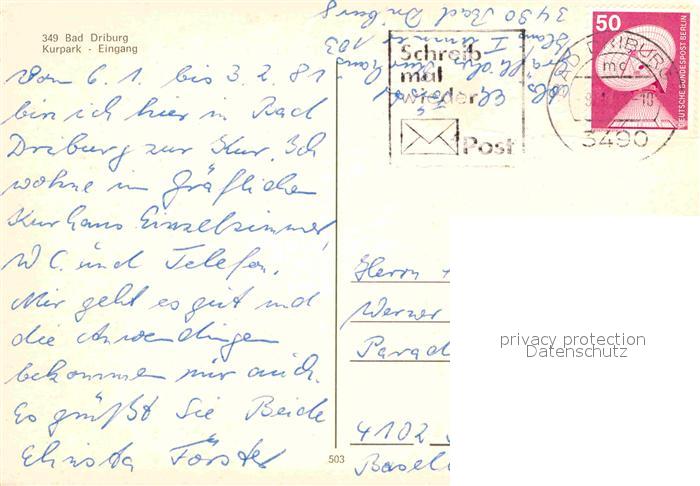 349 Bad Driburg
Kurpark - Eingang
Vom 6. 1. bis 3. 2. 81
bin ich hier in Bad
Driburg zur Kur. Ich
wohne im Gräflichen
Kurhaus Einzelzimmer,
WC. und Telefon.
Mir geht es gut und
die Anwendungen
bekommen mir auch.
Es grüßt Sie Beide
Förster
503
Kurhaus
I
103
3490 Bad Driburg
Schreib
mal
wieder
Post
BAD DRIBURG
3490
50
DEUTSCHE BUNDESPOST BERLIN
Herrn
Werner
Parad
4102
Basel
privacy protection
Datenschutz